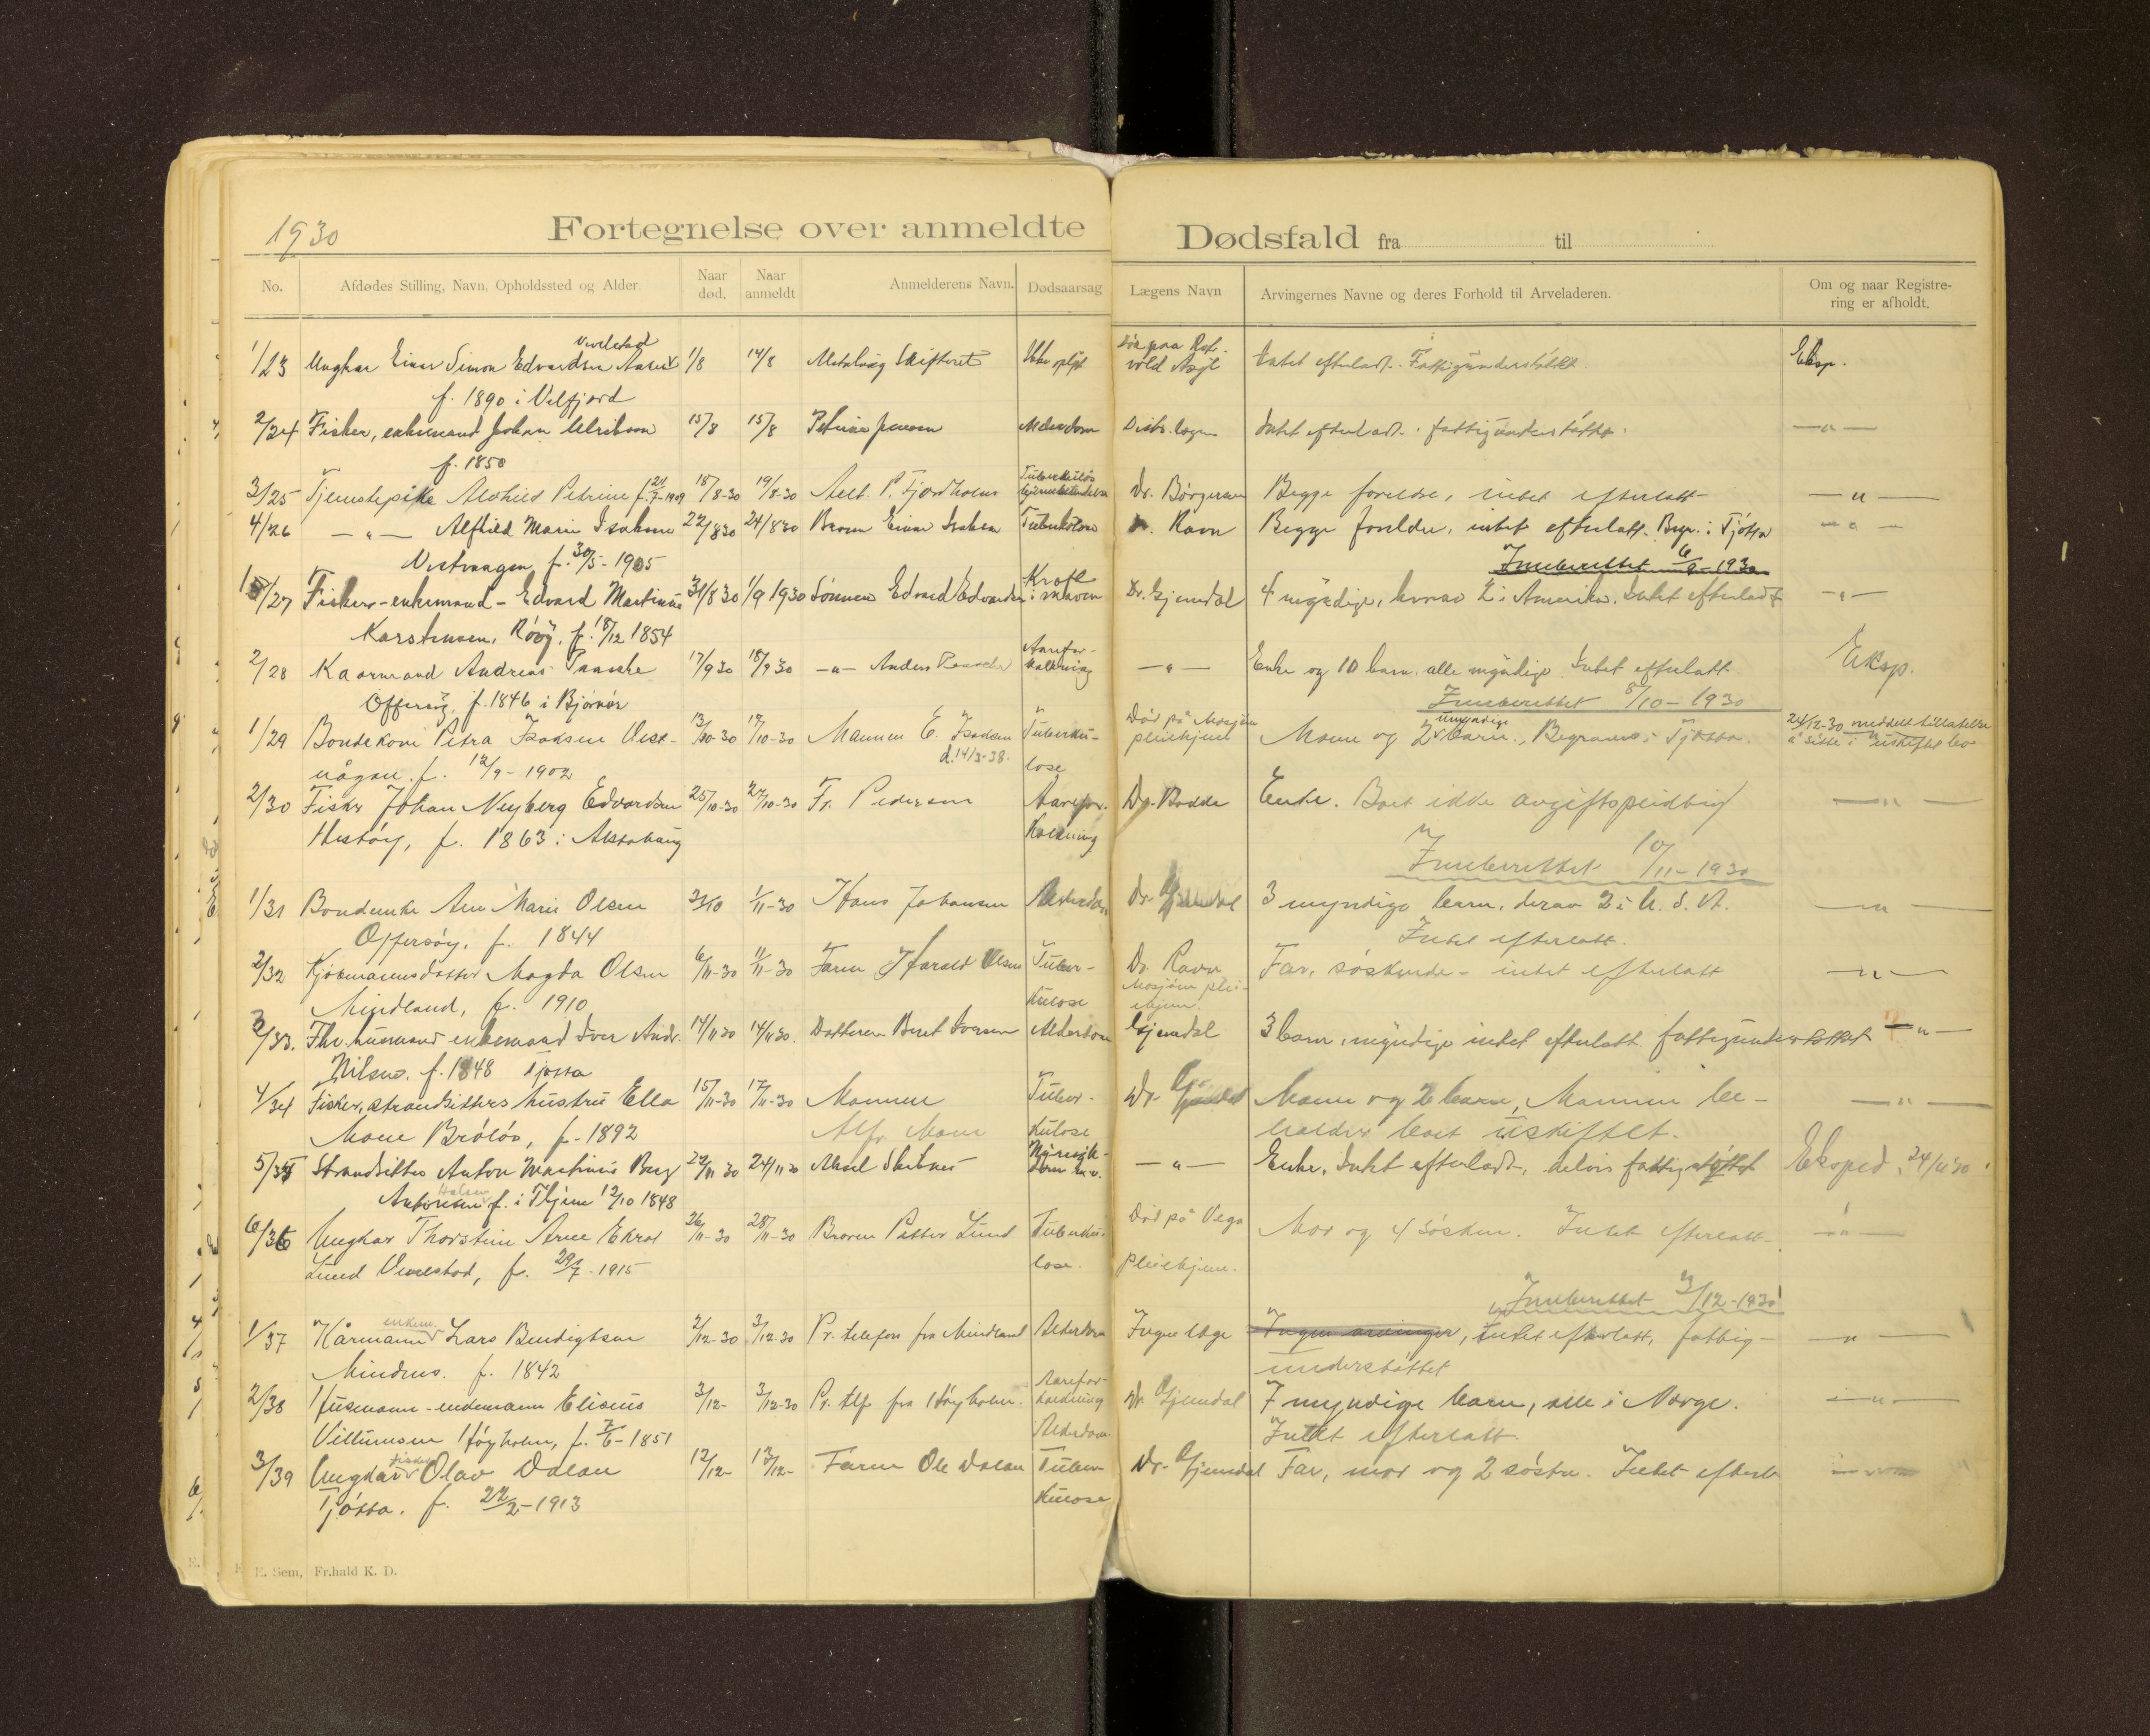 1930
Fortegnelse over anmeldte Dødsfald fra til
No. Afdødes Stilling, Navn, Opholdssted og Alder. Naar død. Naar anmeldt Anmelderens Navn. Dødsaarsag Lægens Navn Arvingernes Navne og deres Forhold til Arveladeren. Om og naar Registrering er afholdt.
1/23 Ungkar Einar Simon Edvardsen 1/8 14/8 Skifteret Intet efterladt. Fattigunderstøttet Eksp.
f. 1890 i Velfjord
2/24 Fisker, enkemand Johan Ulriksen 15/8 15/8 Petrine Jensen Alderdom Distr. lægen Intet efterladt. fattigunderstøttet. — " —
f. 1850
3/25 Tjenestepike Petrine f. 21/7-1909 18/8-30 19/8-30 P. Fjordholm Tuberkuløs Dr. Børgesen Begge foreldre, intet efterlatt — " —
4/26 — " — Alfhild Marie Isaksen 22/8 30 24/8 30 Broren Einar Isaksen Tuberkulose Dr. Ravn Begge foreldre, intet efterlatt. Begr. i Tjøtta — " —
f. 30/5-1905 Innberettet 6/9-1930
1/27 Fisker-enkemand-Edvard Martinus 31/8 30 1/9 1930 Sønnen Edvard Edvardsen Kreft i maven Dr. Gjendal 4 myndige, hvorav 2 i Amerika. Intet efterladt — " —
Karstensen, Røøy, f. 18/12 1854
2/28 Kaarmand Andreas Paasche 17/9 30 18/9 30 — " — Anders Paasche Aareforkalkning — " — Enke og 10 barn, alle myndige. Intet efterlatt Eksp.
Offersøy, f. 1846 i Bjørnør Innberettet 8/10-1930
1/29 Bondekone Petra Isaksen Vest- 13/10-30 17/10-30 Mannen E. Isaksen Tuberku- Død på Mosjøen pleiehjem Mann og 2 umyndige barn. Begraves i Tjøtta. 24/12-30 meddelt tillatelse
vågen. f. 12/9-1902 d. 14/3-38. lose å sitte i uskiftet bo
2/30 Fisker Johan Nyberg Edvardsen 25/10-30 27/10-30 Fr. Pedersen Aarefor- Dr. Bodde Enke. Boet ikke avgiftspliktig — " —
Hestøy, f. 1863 i Alstahaug kalkning
Innberettet 10/11-1930
1/31 Bondeenke Ane Marie Olsen 31/10 1/11-30 Hans Johansen Alderdom Dr. Gjendal 3 myndige barn, derav 2 i U.S.A. — " —
Offersøy, f. 1844 Intet efterlatt.
2/32 Kjøbmannsdatter Magda Olsen 6/11-30 11/11-30 Faren Harald Olsen Tuber- Dr. Ravn Far, søskende - intet efterlatt — " —
Mindland, f. 1910 kulose Mosjøen pleiehjem.
3/33. Fhv. husmand enkemand Iver Andr. 14/11 30 14/11 30. Datteren Beret Iversen Alderdom Gjendal 3 barn, myndige intet efterlatt fattigunderstøttet — " —
Nilsen. f. 1848 Tjøtta
4/34 Fisker, strandsitters hustru Ella 15/11-30 17/11-30 Mannen Tuber- Dr. Gjendal Mann og 2 barn, Mannen be- — " —
Moen Brøløs, f. 1892 Alfr. Moen kulose holder boet uskiftet.
5/35 Strandsitter Anton Martinus Berg 22/11 30 24/11 30 Aksel Nyresyk- — " — Enke, Intet efterladt, delvis fattigstøttet Eksped. 24/11 30.
Antonsen f. i Thjem 12/10 1848 dom m.v.
6/36 Ungkar Thorstein Arne 26/11-30 28/11-30 Broren Petter Lund Tuberku- Død på Vega Mor og 4 søsken. Intet efterlatt — " —
Lund Vevelstad, f. 29/7-1915 lose. pleiehjem.
Innberettet 3/12-1930
1/37 Kårmann enkem. Lars Bendigtsen 2/12-30 3/12-30 Pr. telefon fra Mindland Alderdom Ingen læge Ingen arvinger, intet efterlatt, fattig- — " —
Mindnes. f. 1842 understøttet
2/38 Husmann-enkemann Elisius 3/12- 3/12-30 Pr. tlf. fra Høyholm. Aarefor- Dr. Gjendal 7 myndige barn, alle i Norge. — " —
Villumsen Høyholm, f. 7/6-1851 Alderdom Intet efterlatt.
3/39 Ungkar fisker Olav Dalen 12/12- 13/12- Faren Ole Dalen Tuber- Dr. Gjendal Far, mor og 2 søstre. Intet efterl.
Tjøtta. f. 22/2-1913 kulose
E. Sem, Fr.hald K. D.